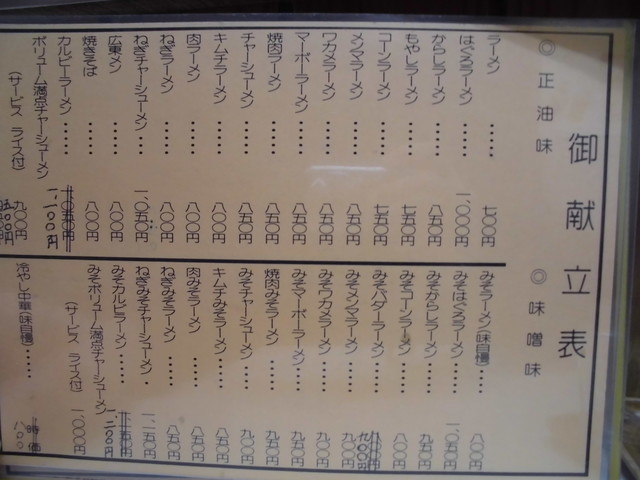 御献立表
◎ 正油味
ラーメン ‥‥ 七〇〇円
はぐろラーメン ‥‥ 一、〇〇〇円
からしラーメン ‥‥ 八五〇円
もやしラーメン ‥‥ 七五〇円
コーンラーメン ‥‥ 七五〇円
メンマラーメン ‥‥ 八五〇円
ワカメラーメン ‥‥ 八五〇円
マーボーラーメン ‥‥ 八五〇円
焼肉ラーメン ‥‥ 八五〇円
チャーシューメン ‥‥ 八五〇円
キムチラーメン ‥‥ 八〇〇円
肉ラーメン ‥‥ 八〇〇円
ねぎラーメン ‥‥ 八〇〇円
ねぎチャーシューメン ‥ 一、〇五〇円
広東メン ‥‥ 八〇〇円
焼きそば ‥‥ 八〇〇円
カルビーラーメン ‥‥ 一、一〇〇円
ボリューム満点チャーシューメン
(サービス ライス付) 九〇〇円
◎ 味噌味
みそラーメン(味自慢) ‥‥ 八〇〇円
みそはぐろラーメン ‥‥ 一、〇五〇円
みそからしラーメン ‥‥ 九五〇円
みそコーンラーメン ‥‥ 八〇〇円
みそバターラーメン ‥‥
みそメンマラーメン ‥‥ 九〇〇円
みそワカメラーメン ‥‥ 九〇〇円
みそマーボーラーメン ‥‥ 九五〇円
焼肉みそラーメン ‥‥ 九五〇円
みそチャーシューメン ‥‥ 九〇〇円
キムチみそラーメン ‥‥ 八五〇円
肉みそラーメン ‥‥ 八五〇円
ねぎみそラーメン ‥‥ 八五〇円
ねぎみそチャーシューメン ‥ 一、一五〇円
みそカルビラーメン ‥‥ 一、二〇〇円
みそボリューム満点チャーシューメン
(サービス ライス付) 一、〇〇〇円
冷やし中華(味自慢) ‥‥ 時価 八〇〇